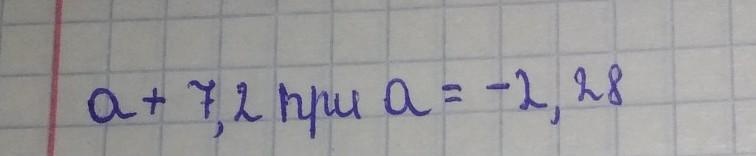 a + 7,2 при a = -2,28